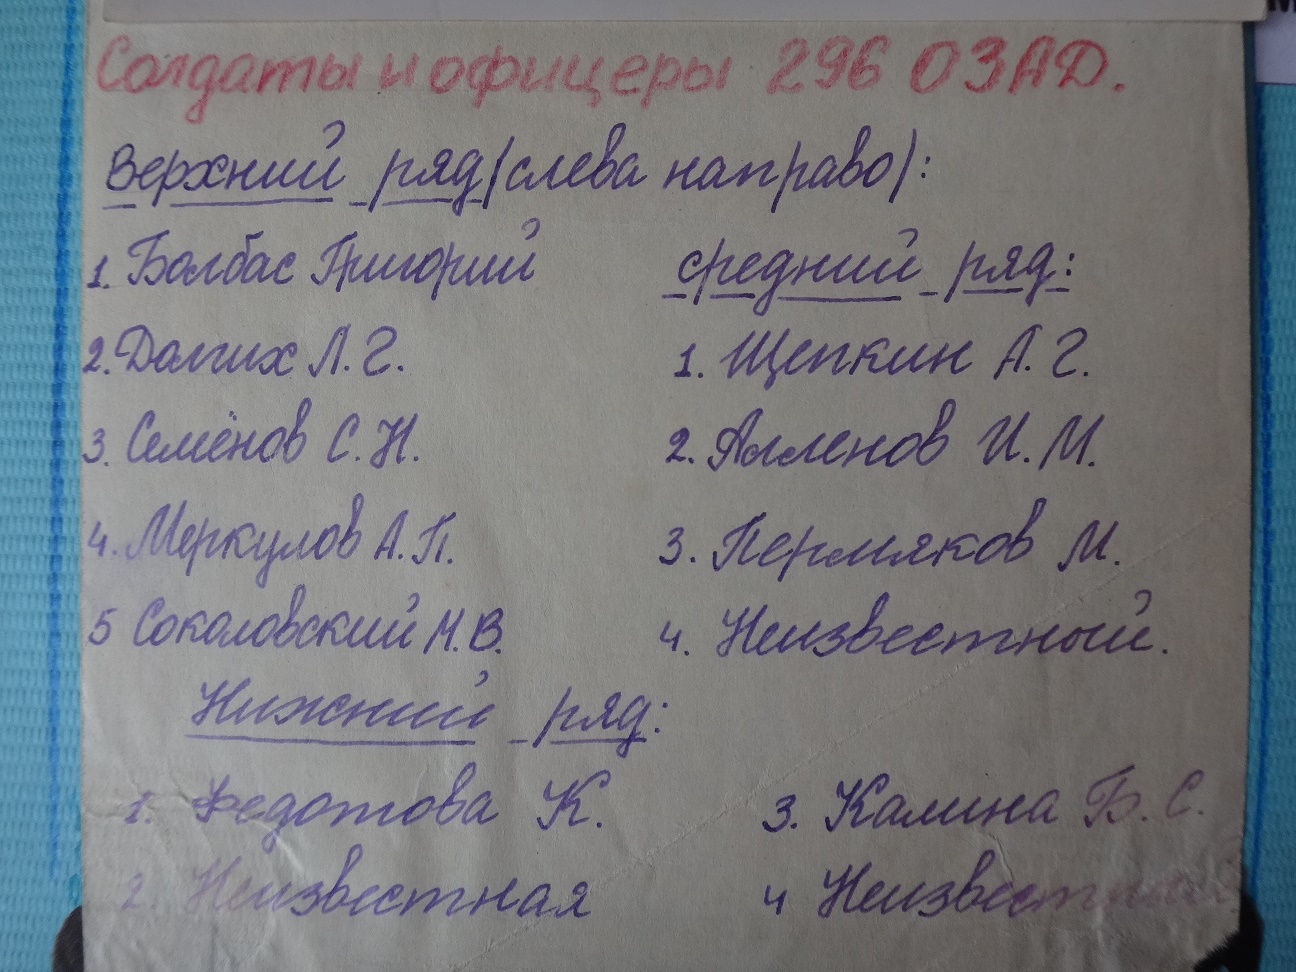 Солдаты и офицеры 296 ОЗАД.
Верхний ряд (слева направо):
1. Балбас Григорий
2. Долгих Л. Г.
3. Семёнов С. Н.
4. Меркулов А. П.
5 Соколовский М. В.
средний ряд:
1. Щепкин А. Г.
2. Алленов И. М.
3. Пермяков М.
4. Неизвестный.
Нижний ряд:
1. Федотова К.
2 Неизвестная
3. Калина Б. С.
4 Неизвестная